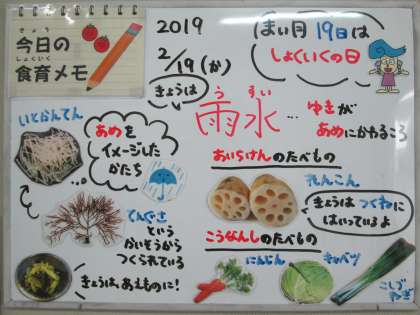 きょう
今日の
しょくいく
食育メモ
2019
2/19(か)
まい月19日は
しょくいくの日
きょうは
う すい
雨水…
ゆきが
あめにかわるころ
いとかんてん
あめを
イメージした
かたち
てんぐさ
という
かいそうから
つくられている
きょうは、あえものに！
あいちけんのたべもの
れんこん
きょうはつくねに
はいっているよ
こうなんしのたべもの
にんじん
キャベツ
こしづ
ねぎ